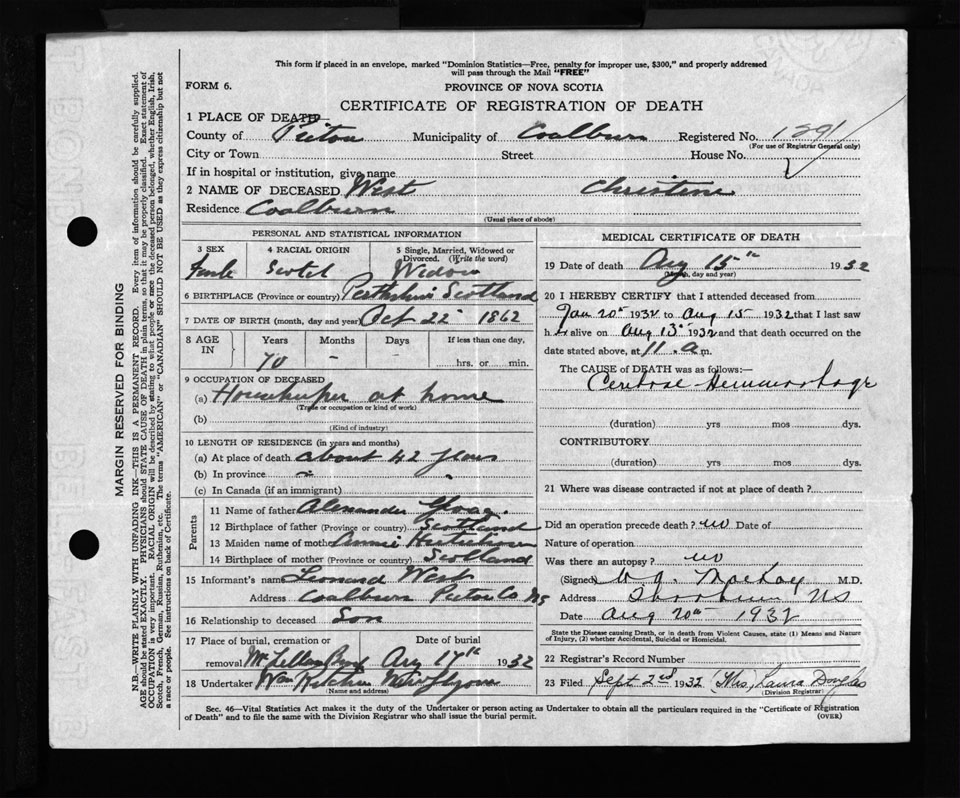 This form if placed in an envelope, marked "Dominion Statistics—Free, penalty for improper use, $300," and properly addressed
will pass through the Mail "FREE"
FORM 6.
PROVINCE OF NOVA SCOTIA
CERTIFICATE OF REGISTRATION OF DEATH
1 PLACE OF DEATH
County of Pictou Municipality of Coalburn Registered No. 1291
(For use of Registrar General only)
City or Town Street House No.
If in hospital or institution, give name
2 NAME OF DECEASED West Christine
Residence Coalburn
(Usual place of abode)
PERSONAL AND STATISTICAL INFORMATION
3 SEX 4 RACIAL ORIGIN 5 Single, Married, Widowed or
Divorced. (Write the word)
Female Scotch Widow
6 BIRTHPLACE (Province or country) Perthshire Scotland
7 DATE OF BIRTH (month, day and year) Oct 22" 1862
8 AGE IN Years Months Days If less than one day,
70 - - hrs. or min.
9 OCCUPATION OF DECEASED
(a) Housekeeper at home
(Trade or occupation or kind of work)
(b)
(Kind of industry)
10 LENGTH OF RESIDENCE (in years and months)
(a) At place of death about 42 years
(b) In province
(c) In Canada (if an immigrant)
Parents
11 Name of father Alexander
12 Birthplace of father (Province or country) Scotland
13 Maiden name of mother Annie
14 Birthplace of mother (Province or country) Scotland
15 Informant's name Leonard West
Address Coalburn Pictou Co NS
16 Relationship to deceased Son
17 Place of burial, cremation or Date of burial
removal McLellans Aug 17th 1932
18 Undertaker Wm
(Name and address)
MEDICAL CERTIFICATE OF DEATH
19 Date of death Aug 15th 1932
(Month, day and year)
20 I HEREBY CERTIFY that I attended deceased from
Jan 20th 1932 to Aug 15 1932 that I last saw
her alive on Aug 13th 1932 and that death occurred on the
date stated above, at 11 a m.
The CAUSE of DEATH was as follows:—
Cerebral Hemmorrhage
(duration) yrs mos dys.
CONTRIBUTORY
(duration) yrs. mos. dys.
21 Where was disease contracted if not at place of death?
Did an operation precede death? no Date of
Nature of operation
Was there an autopsy? no
(Signed) MacKay M.D.
Address Thorburn NS
Date Aug 20th 1932
State the Disease causing Death, or in death from Violent Causes, state (1) Means and Nature
of Injury, (2) whether Accidental, Suicidal or Homicidal.
22 Registrar's Record Number
23 Filed Sept 2nd 1932 (Mrs.) Laura Douglas
(Division Registrar)
Sec. 46—Vital Statistics Act makes it the duty of the Undertaker or person acting as Undertaker to obtain all the particulars required in the "Certificate of Registration
of Death" and to file the same with the Division Registrar who shall issue the burial permit.
(OVER)
MARGIN RESERVED FOR BINDING
N.B.—WRITE PLAINLY WITH UNFADING INK—THIS IS A PERMANENT RECORD. Every item of information should be carefully supplied.
AGE should be stated EXACTLY. PHYSICIANS should STATE CAUSE OF DEATH in plain terms, so that it may be properly classified. Exact statement of
OCCUPATION is very important. RACIAL ORIGIN will be described by stating to what people or race the deceased person belonged, whether English, Irish,
Scotch, French, German, Russian, Ruthenian, etc. The terms "AMERICAN" or "CANADIAN" SHOULD NOT BE USED as they express citizenship but not
a race or people. See instructions on back of Certificate.